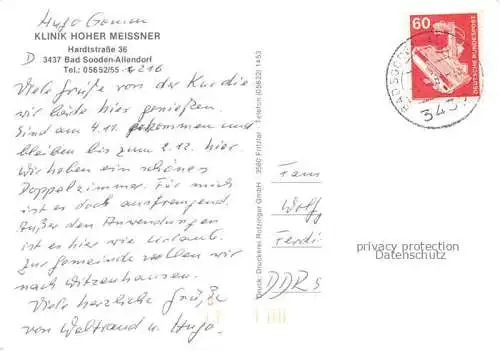 Hugo
KLINIK HOHER MEISSNER
Hardtstraße 36
D 3437 Bad Sooden-Allendorf
Tel.: 05652/55 - 216
Viele Grüße von der Kur die
wir beide hier genießen.
Sind am 4.11. gekommen und
bleiben bis zum 2.12. hier.
Wir haben ein schönes
Doppelzimmer. Für mich
ist es doch anstrengend.
Außer den Anwendungen
ist es hier wie Urlaub.
Zur Gemeinde wollen wir
nach Witzenhausen.
Viele herzliche Grüße
von Waltraud u. Hugo.
Druck: Druckerei Rotzinger GmbH 3580 Fritzlar Telefon (05622) 1453
60
DEUTSCHE BUNDESPOST
BAD SOODEN
343
Fam
Wolf
Ferdi
DDR 5
privacy protection
Datenschutz